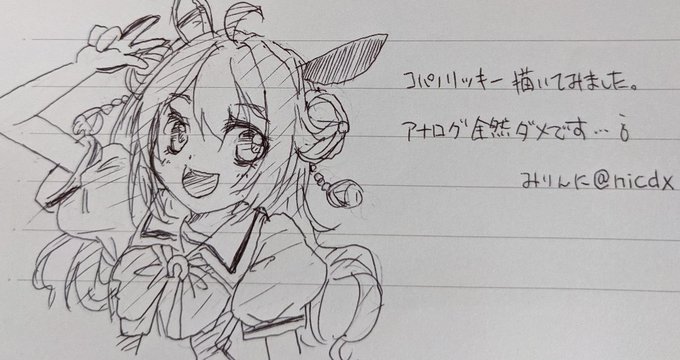 コパノリッキー描いてみました。
アナログ全然ダメです…
みりんに@nicdx